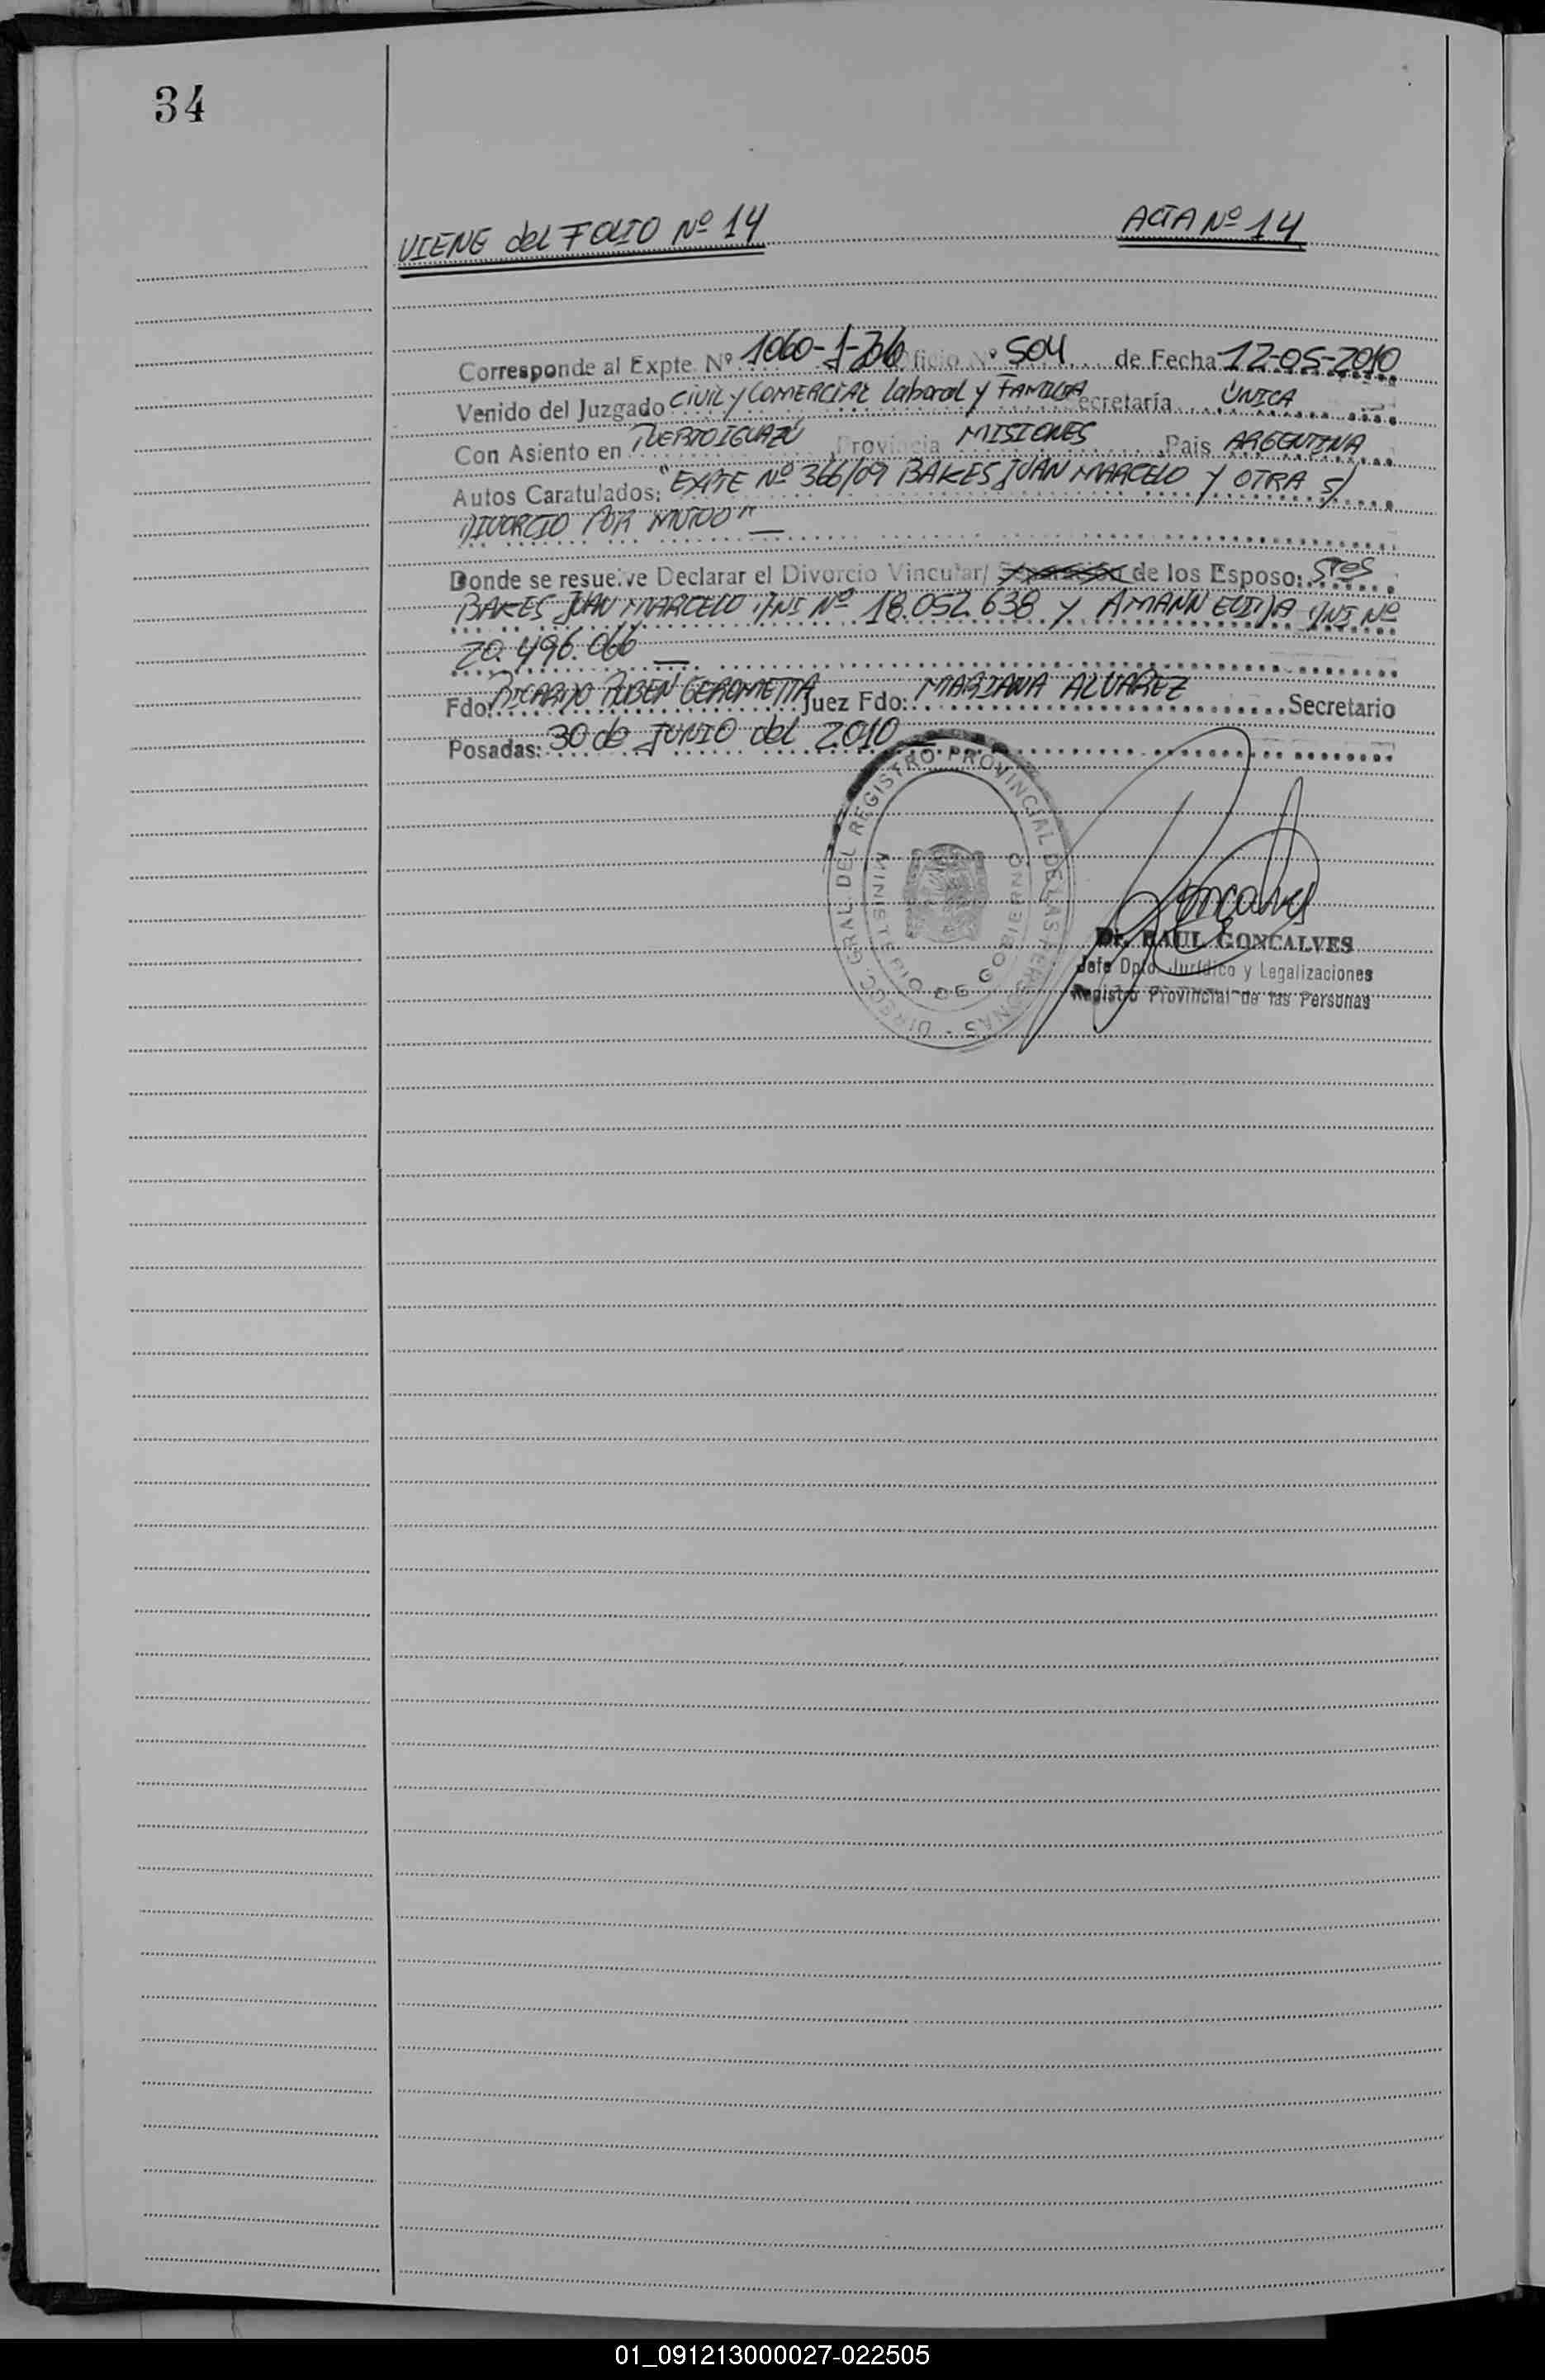 34
VIENE del FOLIO Nº 14 ACTA Nº 14
Corresponde al Expte. Nº 1060-J- Oficio Nº 504 de Fecha 12-05-2010
Venido del Juzgado CIVIL y COMERCIAL Laboral y FAMILIA Secretaría ÚNICA
Con Asiento en PUERTO IGUAZÚ, Provincia MISIONES, Pais ARGENTINA
Autos Caratulados: "EXPTE Nº 366/09 BAKES JUAN MARCELO Y OTRA S/
DIVORCIO POR MUTUO"
Donde se resuelve Declarar el Divorcio Vincular/ Separación de los Esposo: Sres
BAKES JUAN MARCELO DNI Nº 18.052.638 Y AMANN EDIDA DNI Nº
20.496.066
Fdo: RICARDO RUBEN GEROMETTA Juez Fdo: MARIANA ALVAREZ Secretario
Posadas: 30 de JUNIO del 2010
DIRECC. GRAL. DEL REGISTRO PROVINCIAL DE LAS PERSONAS
MINISTERIO DE GOBIERNO
Dr. RAUL GONCALVES
Jefe Dpto. Jurídico y Legalizaciones
Registro Provincial de las Personas
01_091213000027-022505